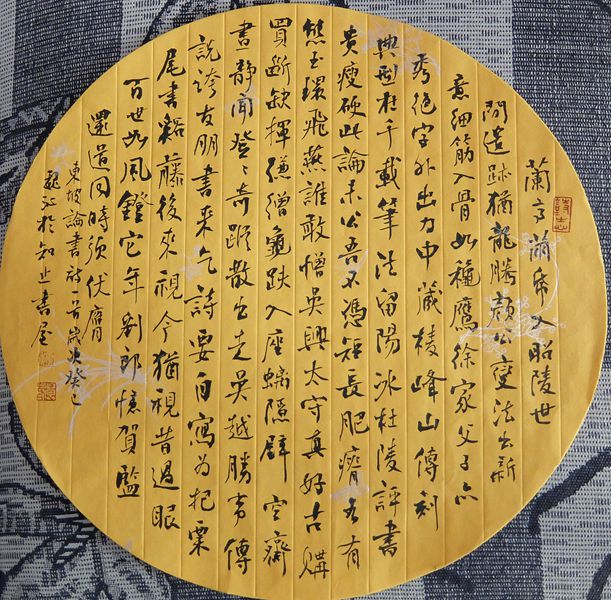 蘭亭繭帋入昭陵世
間遺跡猶龍騰顏公變法出新
意細筋入骨如穐鷹徐家父子亦
秀絕字外出力中藏稜峄山傳刻
典型在千載筆法留陽冰杜陵評書
貴瘦硬此論未公吾不憑短長肥瘠各有
態玉環飛燕誰敢憎吳興太守真好古購
買斷缺揮縑繒龜趺入座螭隱壁空齋
晝靜聞登〻奇蹤散出走吳越勝事傳
說誇友朋書來乞詩要自寫為把栗
尾書谿藤後來視今猶視昔過眼
百世如風鐙它年劉郎憶賀監
還道同時須伏膺
東坡論書詩一首歲次癸巳
於知止書屋